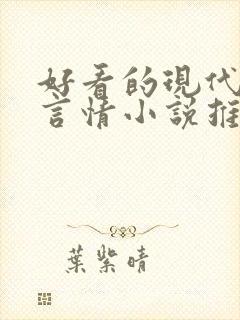 好看的現代
言情小說推
葉紫晴